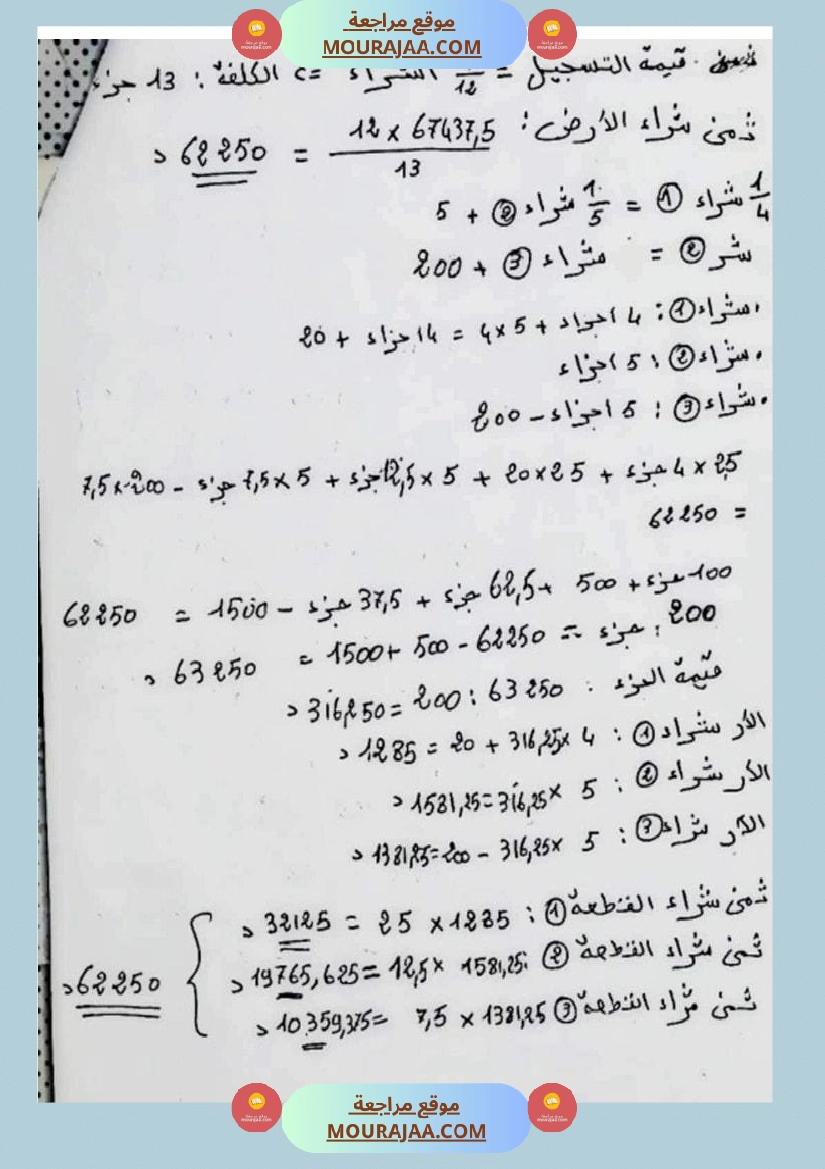 موقع مراجعة
MOURAJAA.COM
قيمة التسجيل = 1/12 الشراء => الكلفة : 13 جزء
ثمن شراء الأرض : 12 × 67437,5 / 13 = 62250 د
1/4 شراء ① = 1/5 شراء ② + 5
شر ② = شراء ③ + 200
• شراء ① : 4 اجزاء + 5×4 = 4 اجزاء + 20
• شراء ② : 5 اجزاء
• شراء ③ : 5 اجزاء – 200
25 × 4 جزء + 25×20 + 5 ×12,5 جزء + 5 ×7,5 جزء – 200×7,5
= 62250
100 جزء + 500 + 62,5 جزء + 37,5 جزء – 1500 = 62250
200 جزء = 62250 - 500 +1500 = 63250 د
قيمة الجزء : 63250 : 200 =316,250 د
الأر شراء ① : 4 ×316,25 + 20 = 1285 د
الأر شراء ② : 5 ×316,25=1581,25 د
الأر شراء ③ : 5 ×316,25 – 200=1381,25 د
ثمن شراء القطعة ① : 1285× 25 = 32125 د
ثمن شراء القطعة ② : 1581,25 ×12,5 =19765,625 د
ثمن شراء القطعة ③ 1381,25 × 7,5 =10359,375 د
62250 د
موقع مراجعة
MOURAJAA.COM